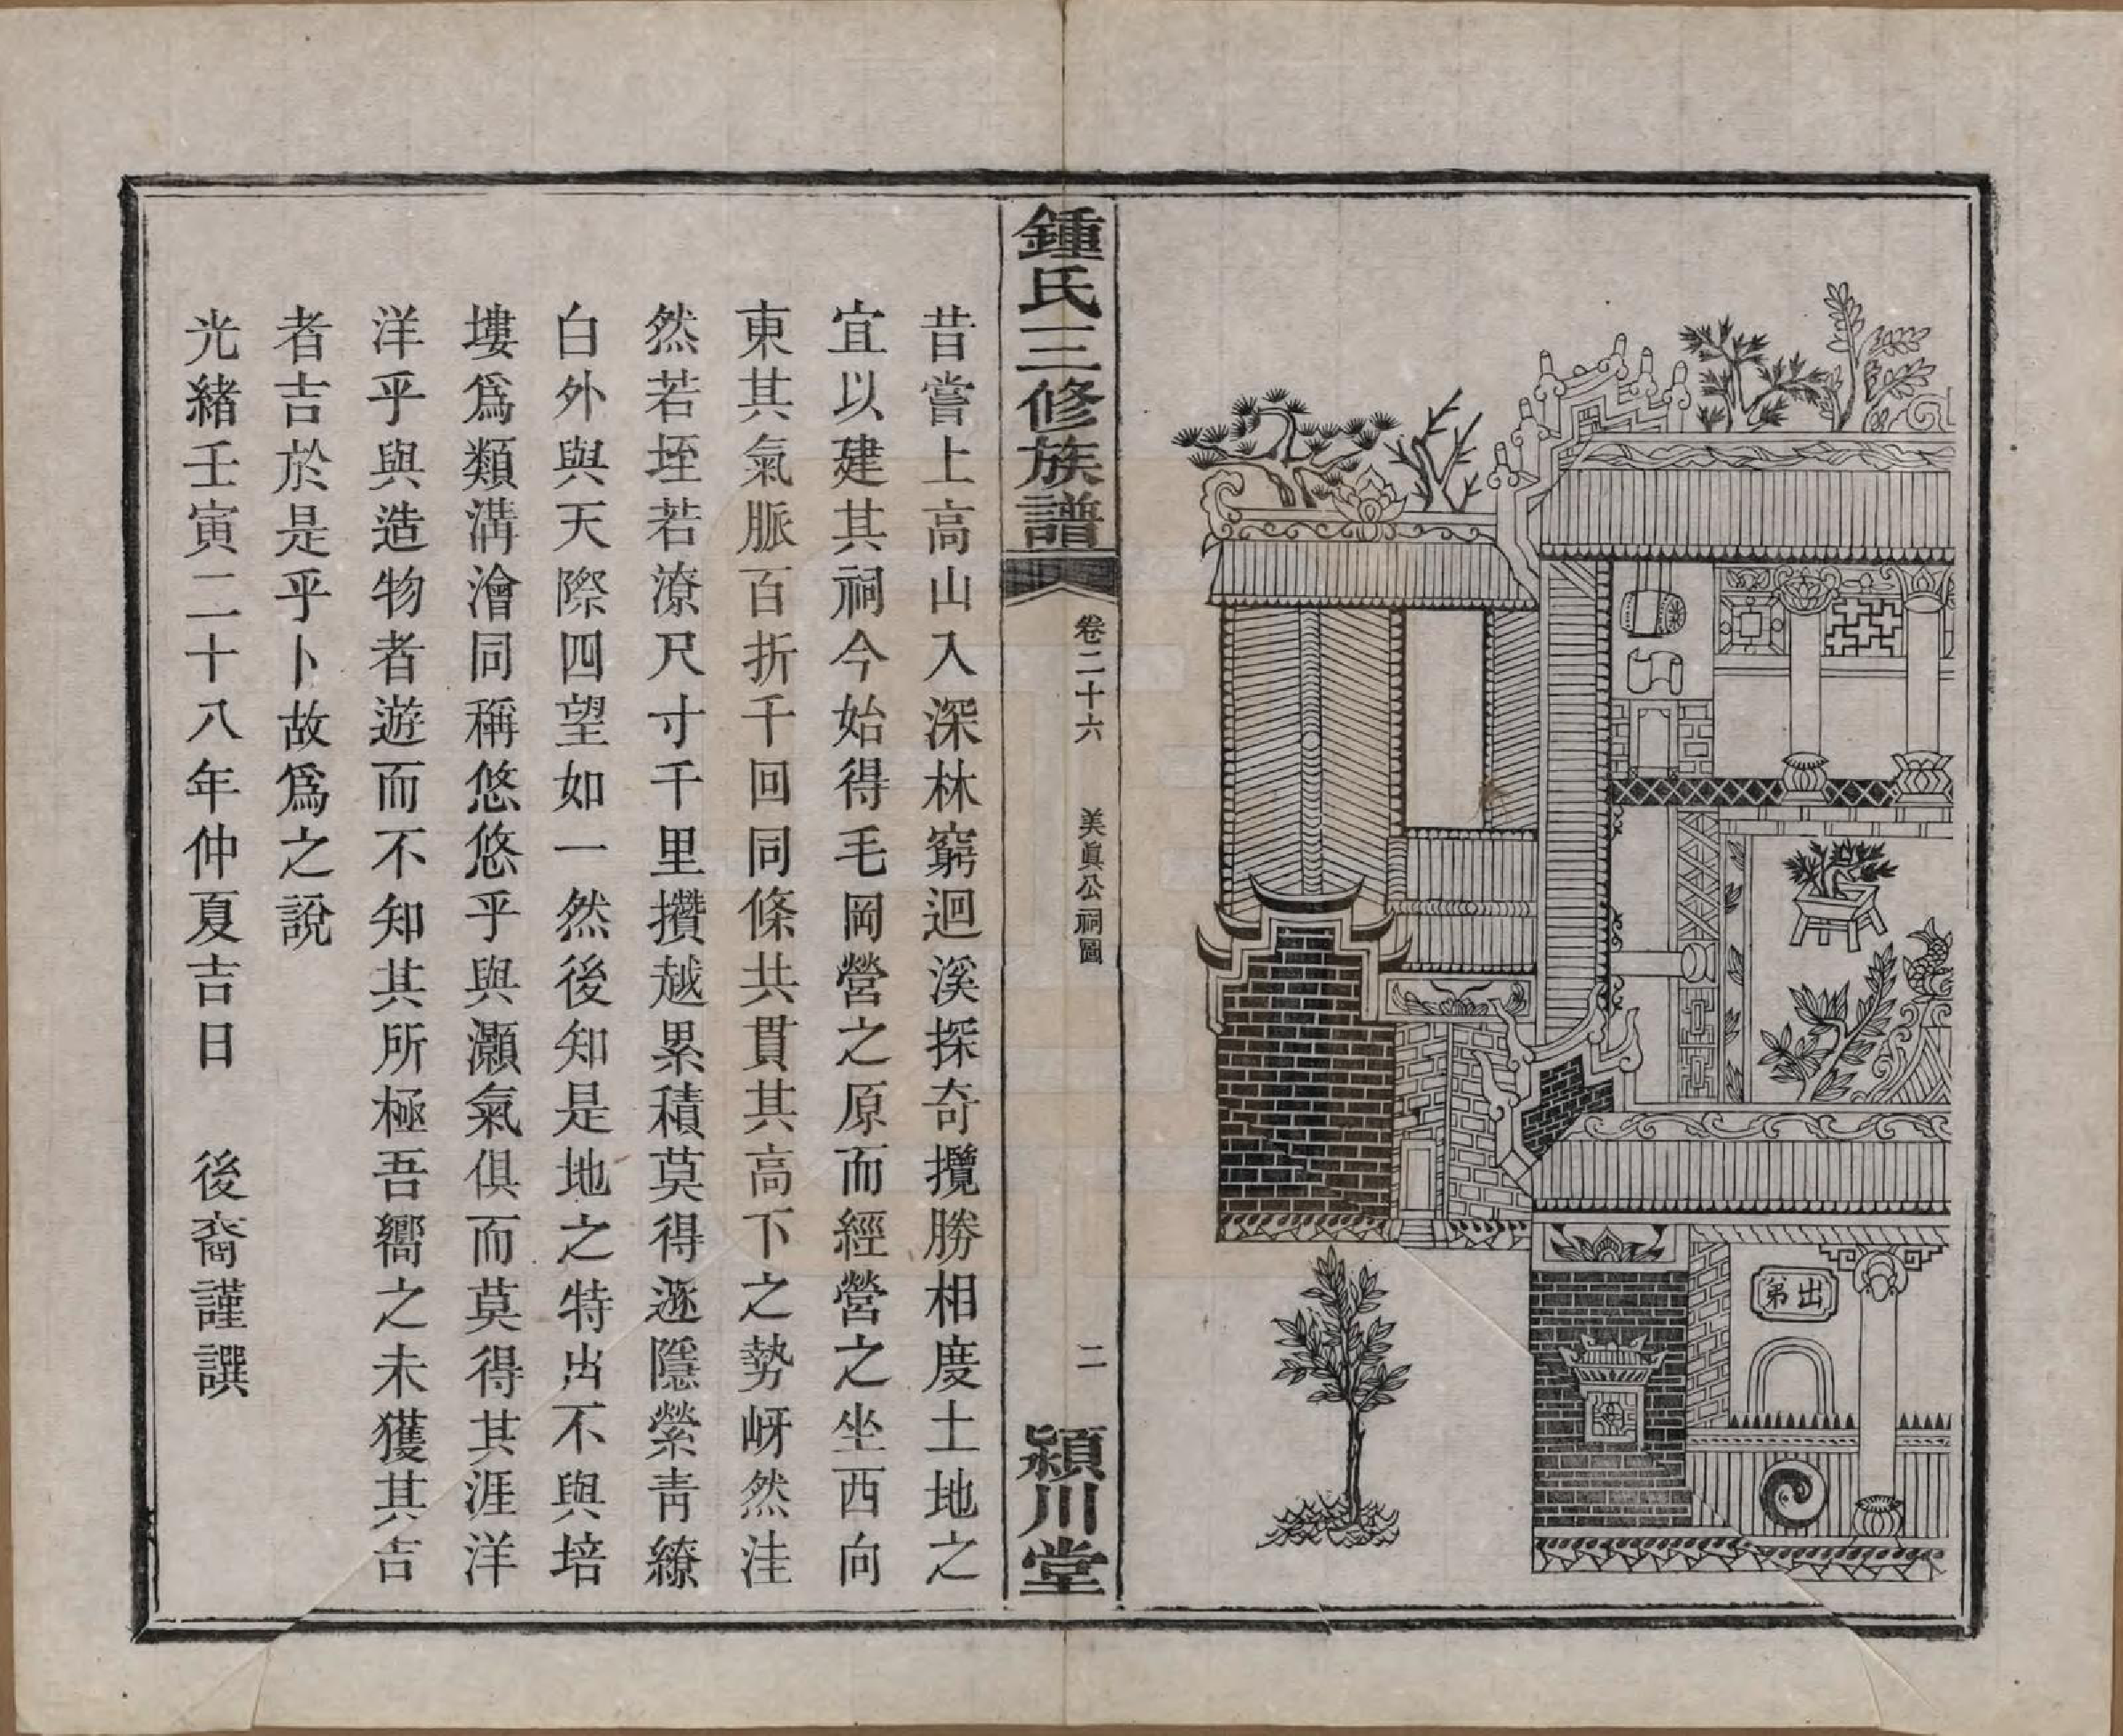 出
弟
鍾氏三修族譜
卷二十六
美眞公祠圖
二
潁川堂
昔嘗上高山入深林窮迴溪探奇攬勝相度土地之
宜以建其祠今始得毛岡營之原而經營之坐西向
東其氣脈百折千回同條共貫其高下之勢岈然洼
然若垤若潦尺寸千里攢越累積莫得遯隱縈靑繚
白外與天際四望如一然後知是地之特出不與培
塿爲類溝澮同稱悠悠乎與灝氣俱而莫得其涯洋
洋乎與造物者遊而不知其所極吾嚮之未獲其吉
者吉於是乎卜故爲之說
光緖壬寅二十八年仲夏吉日　後裔謹譔